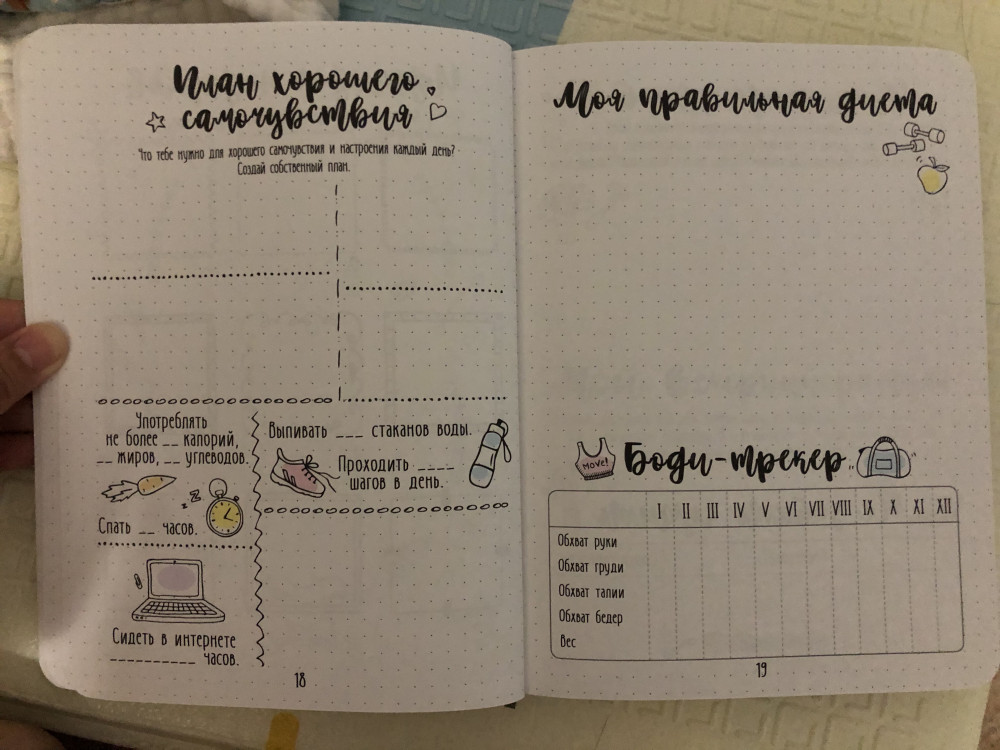 План хорошего
самочувствия
Что тебе нужно для хорошего самочувствия и настроения каждый день?
Создай собственный план.
Употреблять
не более __ калорий,
__ жиров, __ углеводов.
Спать __ часов.
z z
Выпивать ___ стаканов воды.
Проходить ____
шагов в день.
Сидеть в интернете
__________ часов.
18
Моя правильная диета
MOVE!
Боди-трекер
I II III IV V VI VII VIII IX X XI XII
Обхват руки
Обхват груди
Обхват талии
Обхват бедер
Вес
19